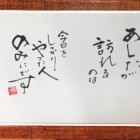 あしたが
訪れるのは
今日を
しっかり
やった人
のみにです